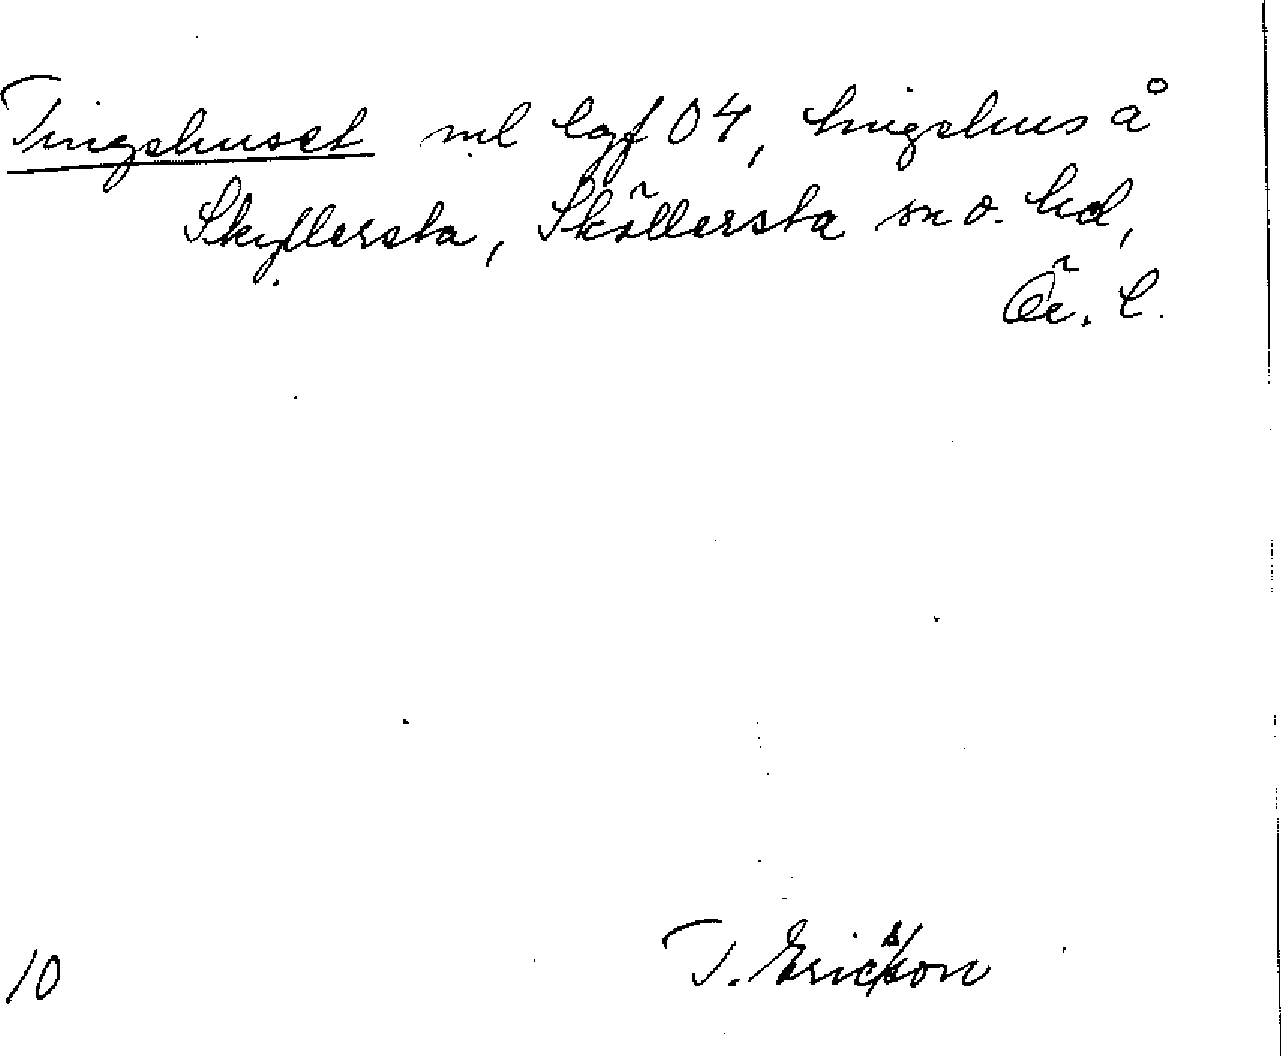 Tingshuset ml lgf 04, tingshus å
Skyllersta, Sköllersta sn o. hd,
Ör. l.
10
T. Ericsson